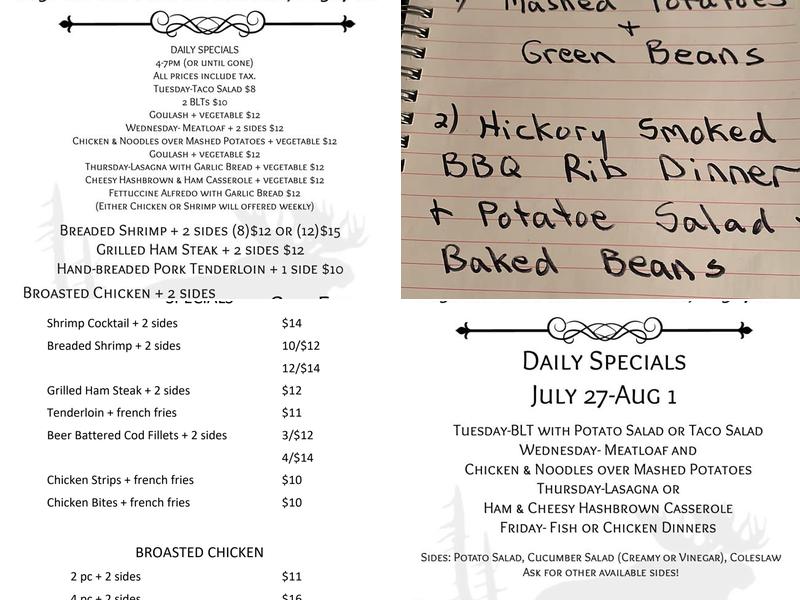 DAILY SPECIALS
4-7PM (OR UNTIL GONE)
ALL PRICES INCLUDE TAX.
TUESDAY-TACO SALAD $8
2 BLTS $10
GOULASH + VEGETABLE $12
WEDNESDAY- MEATLOAF + 2 SIDES $12
CHICKEN & NOODLES OVER MASHED POTATOES + VEGETABLE $12
GOULASH + VEGETABLE $12
THURSDAY-LASAGNA WITH GARLIC BREAD + VEGETABLE $12
CHEESY HASHBROWN & HAM CASSEROLE + VEGETABLE $12
FETTUCCINE ALFREDO WITH GARLIC BREAD $12
(EITHER CHICKEN OR SHRIMP WILL OFFERED WEEKLY)
BREADED SHRIMP + 2 SIDES (8)$12 OR (12)$15
GRILLED HAM STEAK + 2 SIDES $12
HAND-BREADED PORK TENDERLOIN + 1 SIDE $10
BROASTED CHICKEN + 2 SIDES
Mashed Potatoes
+
Green Beans
2) Hickory Smoked
BBQ Rib Dinner
+ Potatoe Salad
Baked Beans
SPECIALS
Shrimp Cocktail + 2 sides $14
Breaded Shrimp + 2 sides 10/$12
12/$14
Grilled Ham Steak + 2 sides $12
Tenderloin + french fries $11
Beer Battered Cod Fillets + 2 sides 3/$12
4/$14
Chicken Strips + french fries $10
Chicken Bites + french fries $10
BROASTED CHICKEN
2 pc + 2 sides $11
4 pc + 2 sides $16
DAILY SPECIALS
JULY 27-AUG 1
TUESDAY-BLT WITH POTATO SALAD OR TACO SALAD
WEDNESDAY- MEATLOAF AND
CHICKEN & NOODLES OVER MASHED POTATOES
THURSDAY-LASAGNA OR
HAM & CHEESY HASHBROWN CASSEROLE
FRIDAY- FISH OR CHICKEN DINNERS
SIDES: POTATO SALAD, CUCUMBER SALAD (CREAMY OR VINEGAR), COLESLAW
ASK FOR OTHER AVAILABLE SIDES!